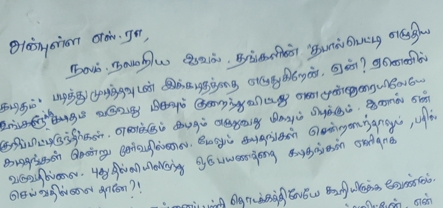 அன்புள்ள எஸ்.ரா,
நலம். நலமறிய ஆவல். தங்களின் தபால்பெட்டி எழுதிய
கடிதம். படித்து முடித்தவுடன் இக்கடிதத்தை எழுதுகிறேன். ஏன்? ஏனெனில்
கடிதம் வருவது மிகவும் குறைந்துவிட்டது என முன்னுரையிலேயே
குறிப்பிட்டிருந்தீர்கள். எனக்கும் கடிதம் எழுதுவது மிகவும் பிடிக்கும். ஆனால் என்
கடிதங்கள் சென்று சேர்வதில்லை. மேலும் கடிதங்கள் சென்றடைந்தாலும், பதில்
வருவதில்லை. புதுதில்லியிலிருந்து ஒரே பயணத்தை கடிதங்கள் எளிதாக
செய்வதில்லை தானே?!
தொடக்கத்திலேயே கூறியிருக்க வேண்டும்.
என்